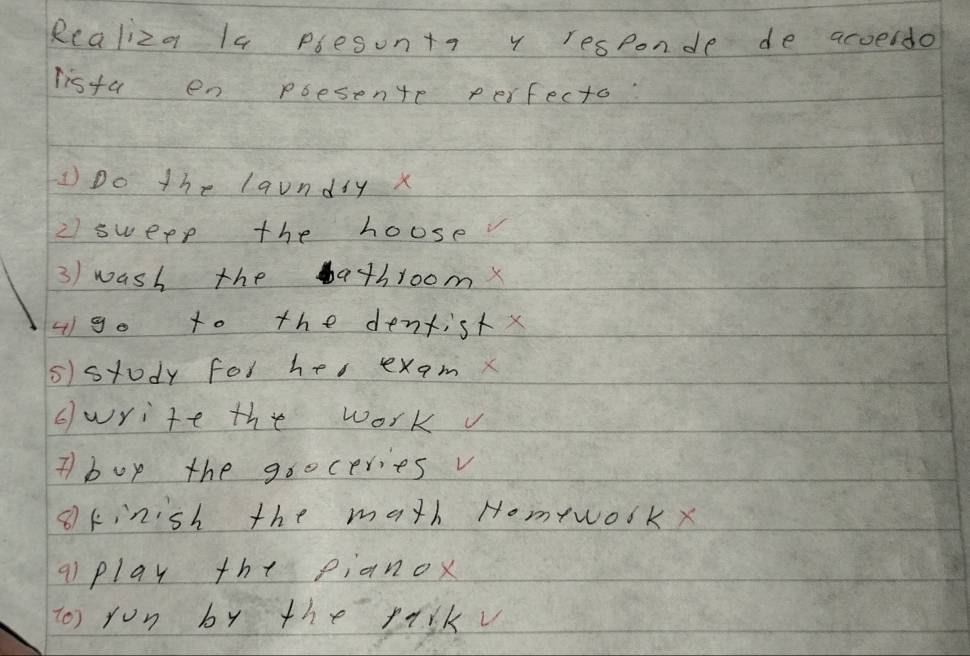 Realiza la pregunta y responde de acuerdo
lista en presente perfecto:
1) Do the laundry x
2) sweep the house ✓
3) wash the bathroom x
4) go to the dentist x
5) study for her exam x
6) write the work ✓
7) buy the groceries ✓
8) Finish the math Homework x
9) play the piano x
10) run by the park ✓